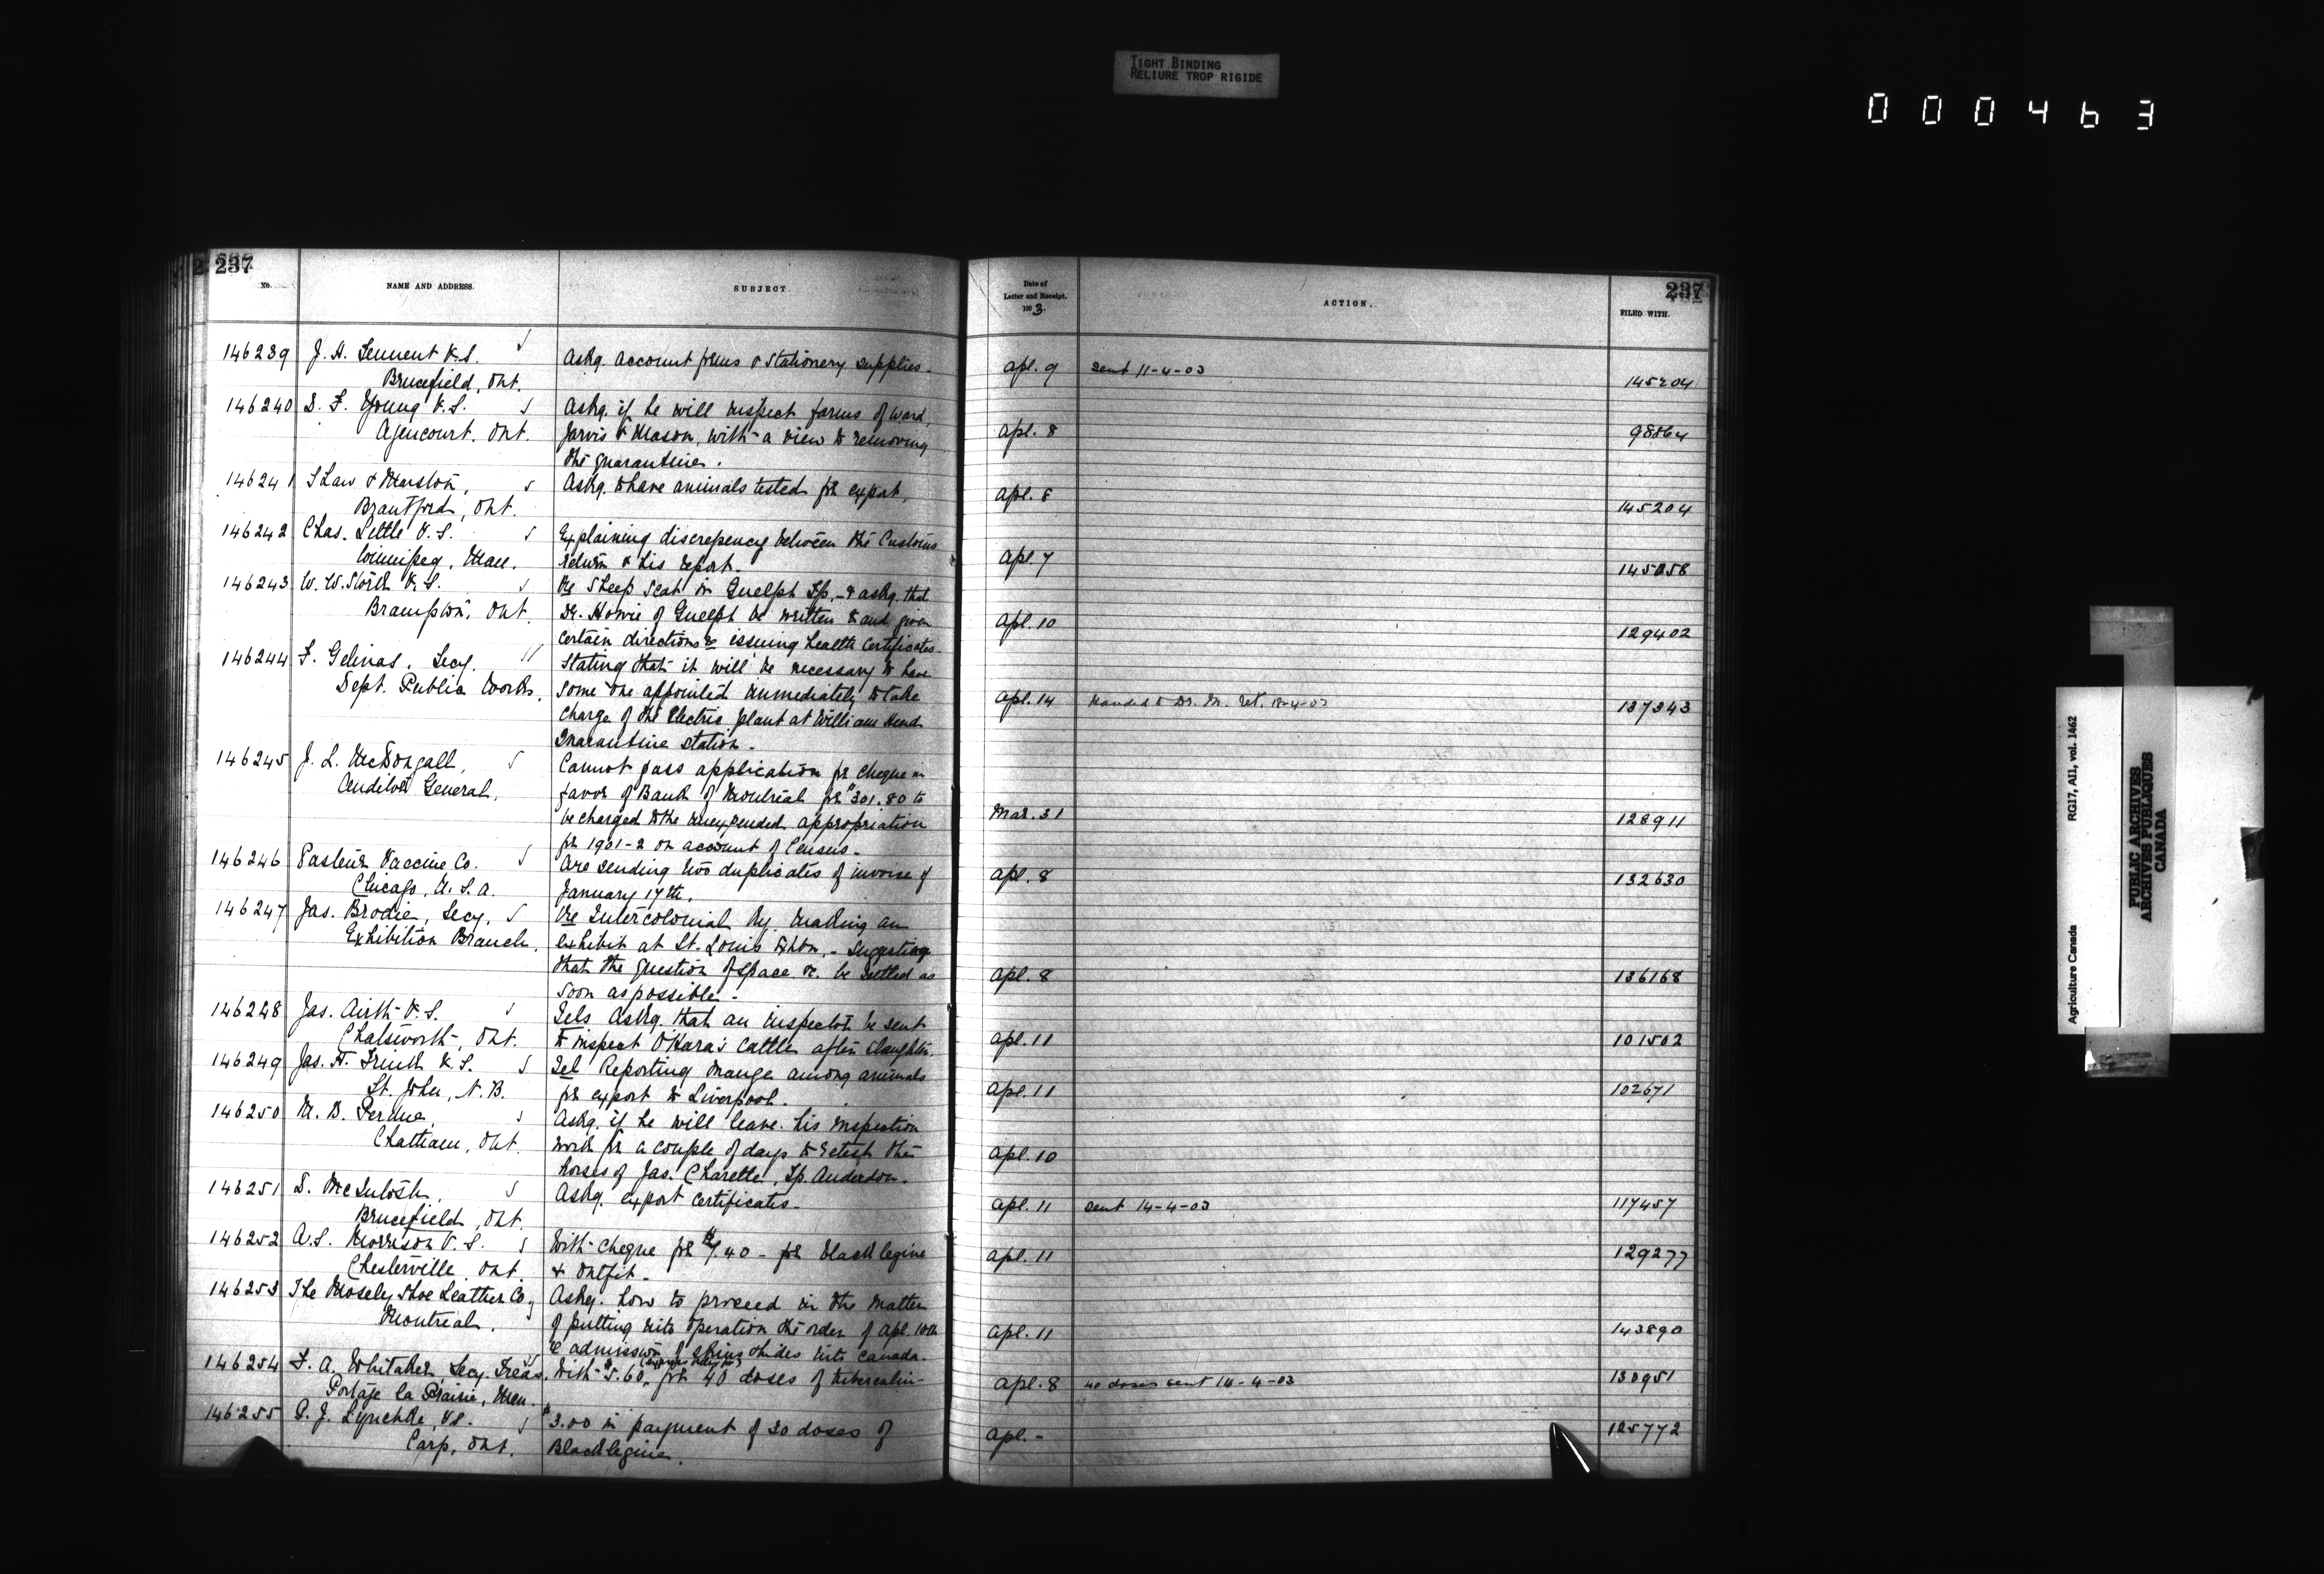 TIGHT BINDING
RELIURE TROP RIGIDE
000463
237
No.
NAME AND ADDRESS.
SUBJECT.
Date of
Letter and Receipt.
1903.
ACTION.
237
FILED WITH.
146239 J. H. Tennent V.S.
Askg. account forms & stationery supplies.
Apl. 9
sent 11-4-03
Brucefield, Ont.
145204
146240 D. F. Young V.S.
Askg. if he will inspect farms of Ward,
Agencourt, Ont.
Jarvis & Mason, with a view to removing
Apl. 8
98864
the quarantine.
146241 Shaw & Marston,
Askg. to have animals tested for export.
Apl. 8
Brantford, Ont.
145204
146242 Chas. Little V.S.
Explaining discrepency between the Customs
Winnipeg, Man.
return & his report.
Apl. 7
145058
146243 W. W. Stork V.S.
Re Sheep Scab in Guelph Tp. - & askg. that
Brampton, Ont.
Dr. Howie of Guelph be written to and given
Apl 10
129402
certain directions re issuing health certificates.
146244 F. Gelinas, Secy.
Stating that it will be necessary to have
Dept. Public Works,
some one appointed immediately to take
Apl. 14
Handed to Dr. M. 18-4-03
137343
charge of the Electric plant at William Head
Quarantine station.
146245 J. L. McDougall,
Cannot pass application for cheque in
Auditor General,
favor of Bank of Montreal for $301.80 to
be charged to the unexpended appropriation
Mar. 31
128911
for 1901-2 on account of Census.
146246 Pasteur Vaccine Co.
Are sending two duplicates of invoice of
Chicago, U.S.A.
January 17th.
Apl. 8
132630
146247 Jas. Brodie, Secy,
Re Intercolonial Ry. making an
Exhibition Branch,
exhibit at St. Louis Exhbn. - suggesting
that the question of space &c. be settled as
Apl. 8
136168
soon as possible.
146248 Jas. Airth V.S.
Tels askg. that an inspector be sent
Chatsworth, Ont.
to inspect O'Hara's cattle after slaughter.
Apl. 11
101502
146249 Jas. H. Frink V.S.
Tel Reporting mange among animals
St. John, N.B.
for export to Liverpool.
Apl. 11
102671
146250 M. B. Perdue
Askg. if he will leave his inspection
Chatham, Ont.
work for a couple of days to retest the
Apl. 10
horses of Jas. Charette, Tp. Anderdon.
146251 D. McIntosh,
Askg. export certificates.
Apl. 11
sent 14-4-03
117457
Brucefield, Ont.
146252 A.S. Morrison V.S.
With cheque for $7.40 - for blacklegine
Apl. 11
129277
Chesterville, Ont.
& outfit.
146253 The Mosely Shoe Leather Co.,
Askg. how to proceed in the matter
Montreal.
of putting into operation the order of Apl. 10th
Apl. 11
143890
re admission of skins & hides into Canada.
146254 F. A. Whitaker, Secy. Treas.
With $5.60, for 40 doses of tuberculin.
Apl. 8
40 doses sent 14-4-03
130951
Portage la Prairie, Man.
146255
$3.00 in payment of 20 doses of
Apl. -
125772
Carp, Ont.
Blacklegine.
Agriculture Canada
RG17, A11, vol. 1462
PUBLIC ARCHIVES
ARCHIVES PUBLIQUES
CANADA